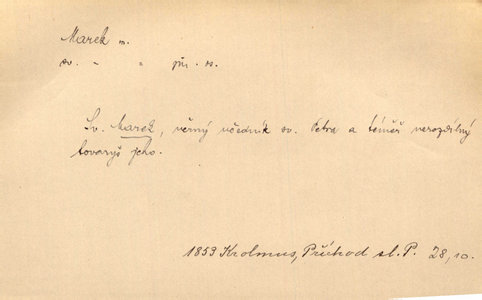 Marek m.
sv. - " př. os.
Sv. Marek, věrný učedník sv. Petra a téměř nerozdílný
tovaryš jeho.
1853 Krolmus, Příchod sl. P. 28, 10.